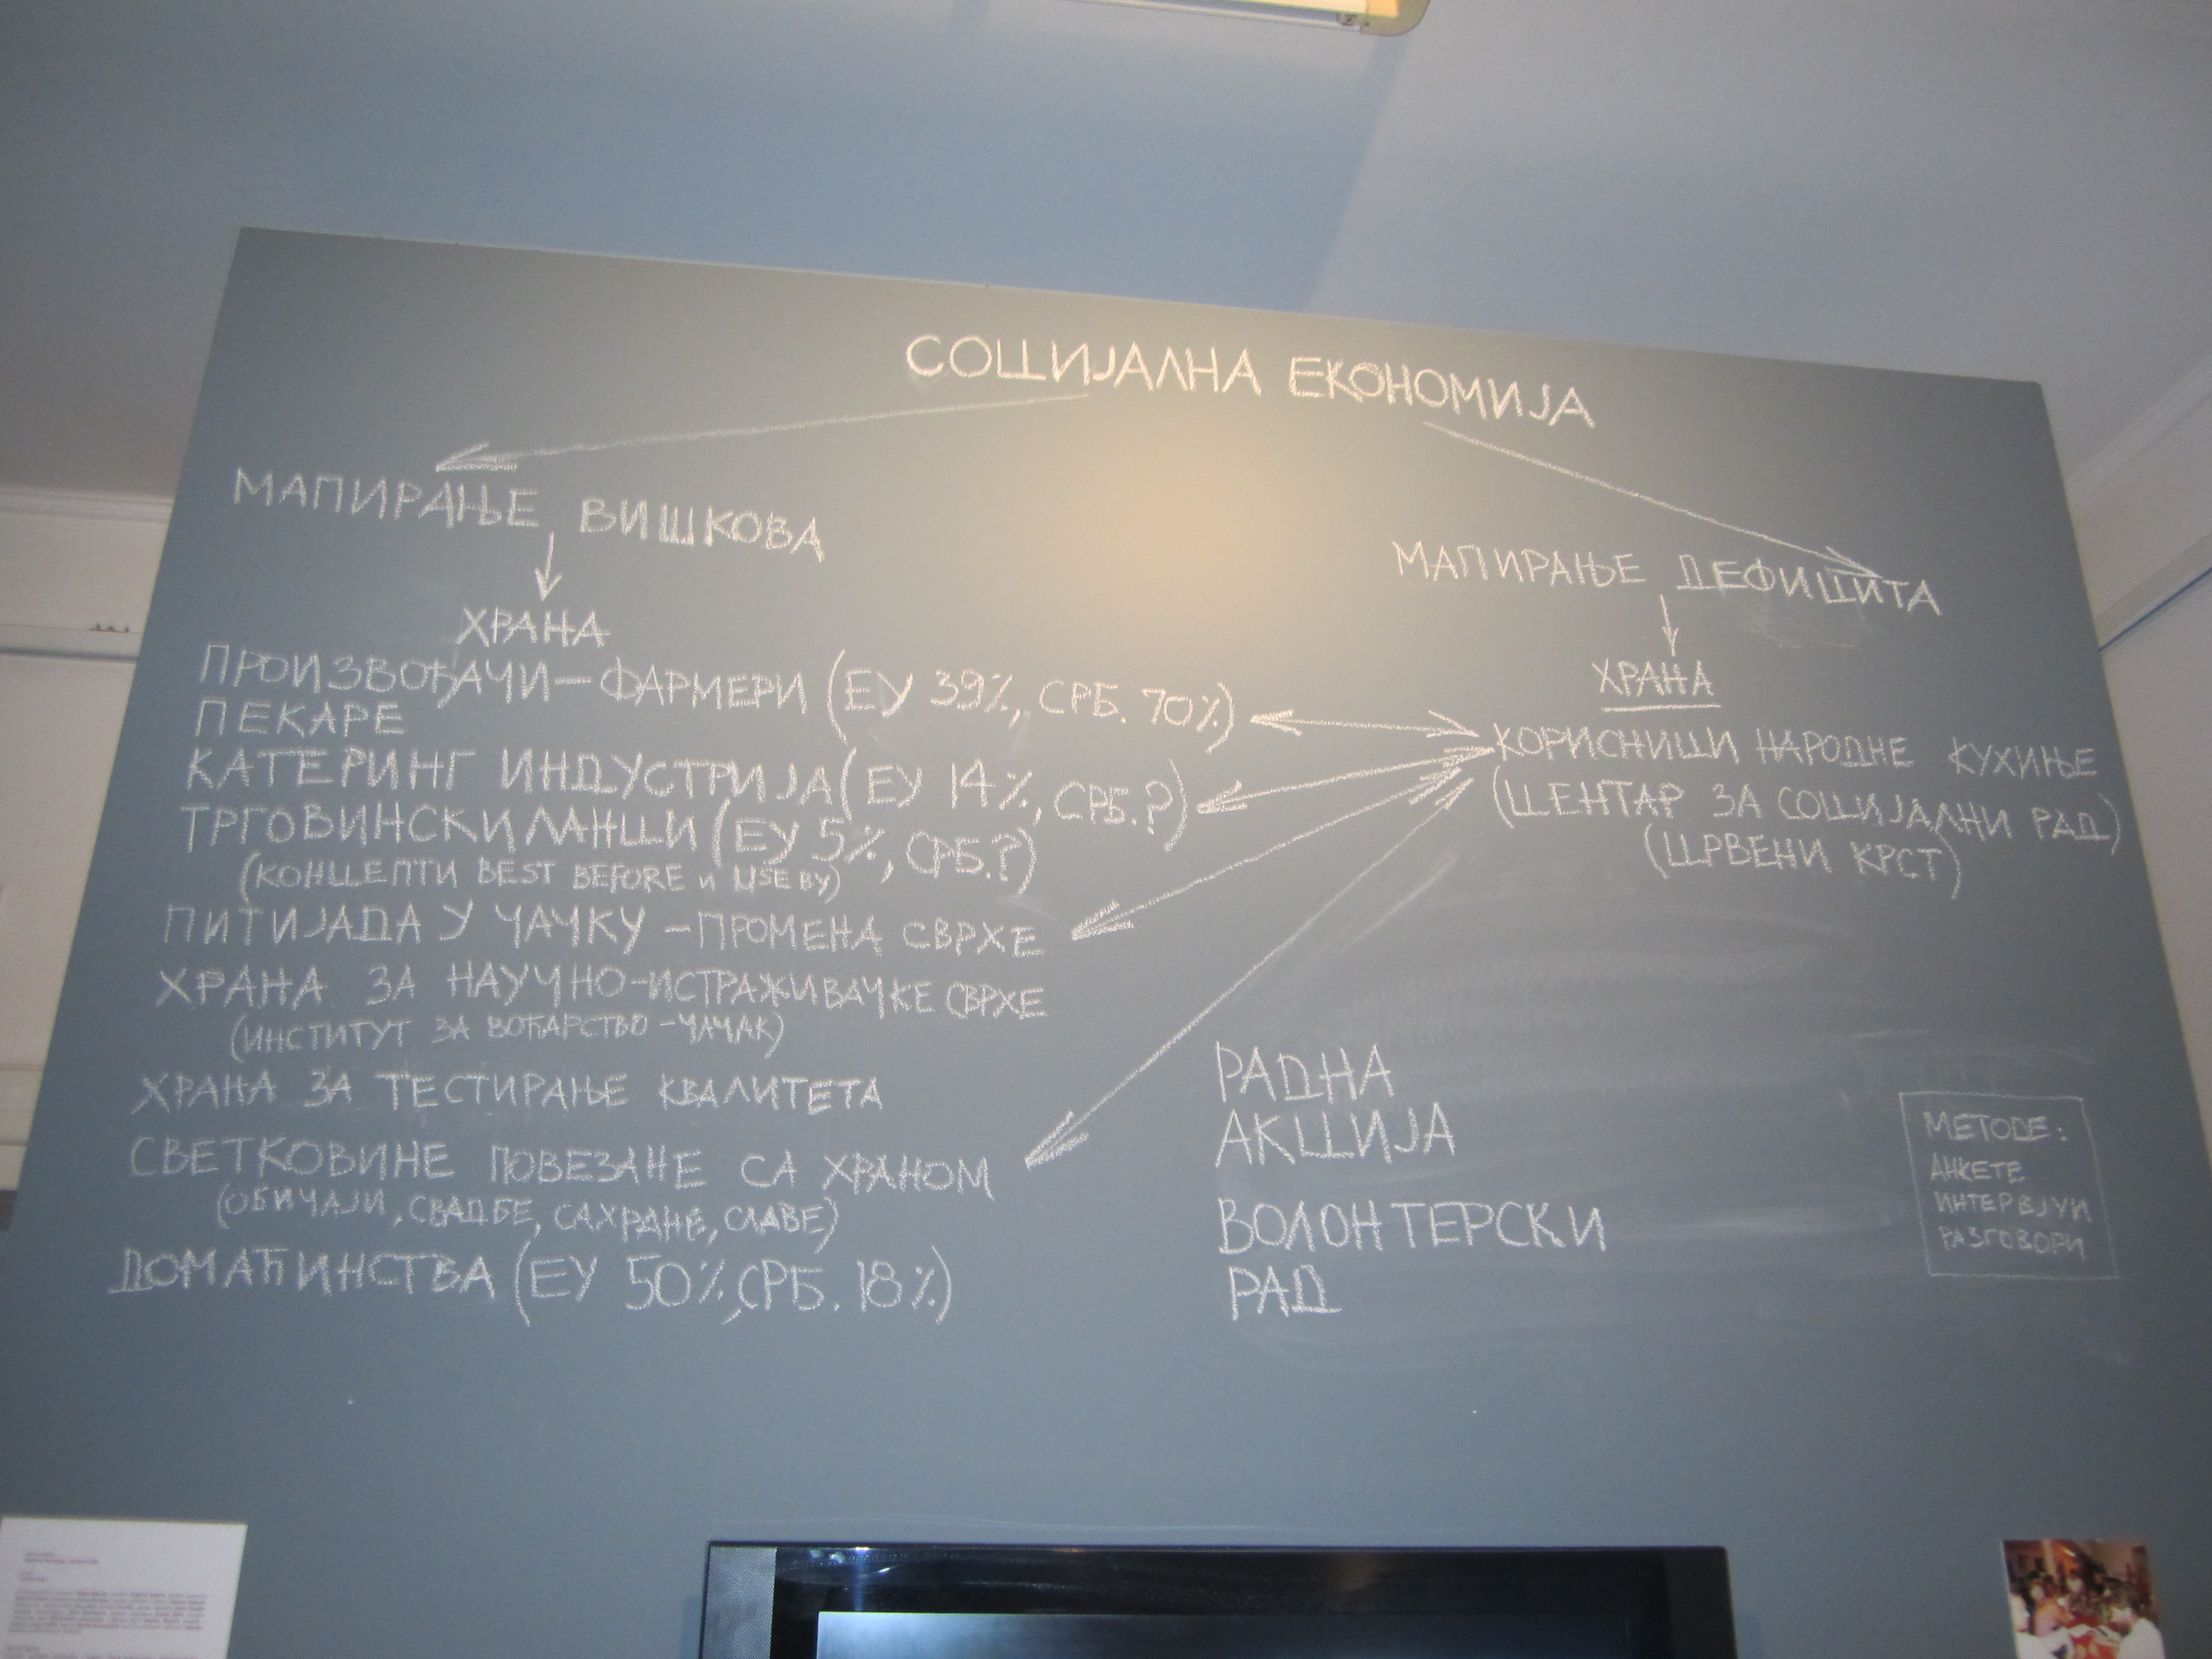 СОЦИЈАЛНА ЕКОНОМИЈА
МАПИРАЊЕ ВИШКОВА
ХРАНА
ПРОИЗВОЂАЧИ–ФАРМЕРИ (ЕУ 39%, СРБ. 70%)
ПЕКАРЕ
КАТЕРИНГ ИНДУСТРИЈА (ЕУ 14%, СРБ.?)
ТРГОВИНСКИ ЛАНЦИ (ЕУ 5%, СРБ.?)
(КОНЦЕПТИ BEST BEFORE и USE BY)
ПИТИЈАДА У ЧАЧКУ – ПРОМЕНА СВРХЕ
ХРАНА ЗА НАУЧНО-ИСТРАЖИВАЧКЕ СВРХЕ
(ИНСТИТУТ ЗА ВОЋАРСТВО – ЧАЧАК)
ХРАНА ЗА ТЕСТИРАЊЕ КВАЛИТЕТА
СВЕТКОВИНЕ ПОВЕЗАНЕ СА ХРАНОМ
(ОБИЧАЈИ, СВАДБЕ, САХРАНЕ, СЛАВЕ)
ДОМАЋИНСТВА (ЕУ 50%, СРБ. 18%)
МАПИРАЊЕ ДЕФИЦИТА
ХРАНА
КОРИСНИЦИ НАРОДНЕ КУХИЊЕ
(ЦЕНТАР ЗА СОЦИЈАЛНИ РАД)
(ЦРВЕНИ КРСТ)
РАДНА
АКЦИЈА
ВОЛОНТЕРСКИ
РАД
МЕТОДЕ:
АНКЕТЕ
ИНТЕРВЈУИ
РАЗГОВОРИ